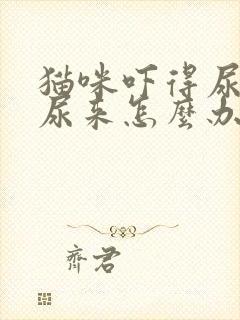 猫咪吓得尿
尿来怎麼办
齊君